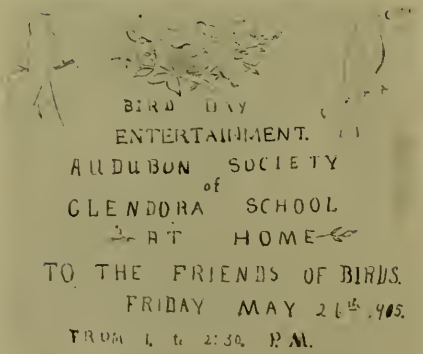 BIRD DAY
ENTERTAINMENT.
AUDUBON SOCIETY
of
GLENDORA SCHOOL
AT HOME
TO THE FRIENDS OF BIRDS.
FRIDAY MAY 26th 1905.
FROM 1. to 2:30. P.M.